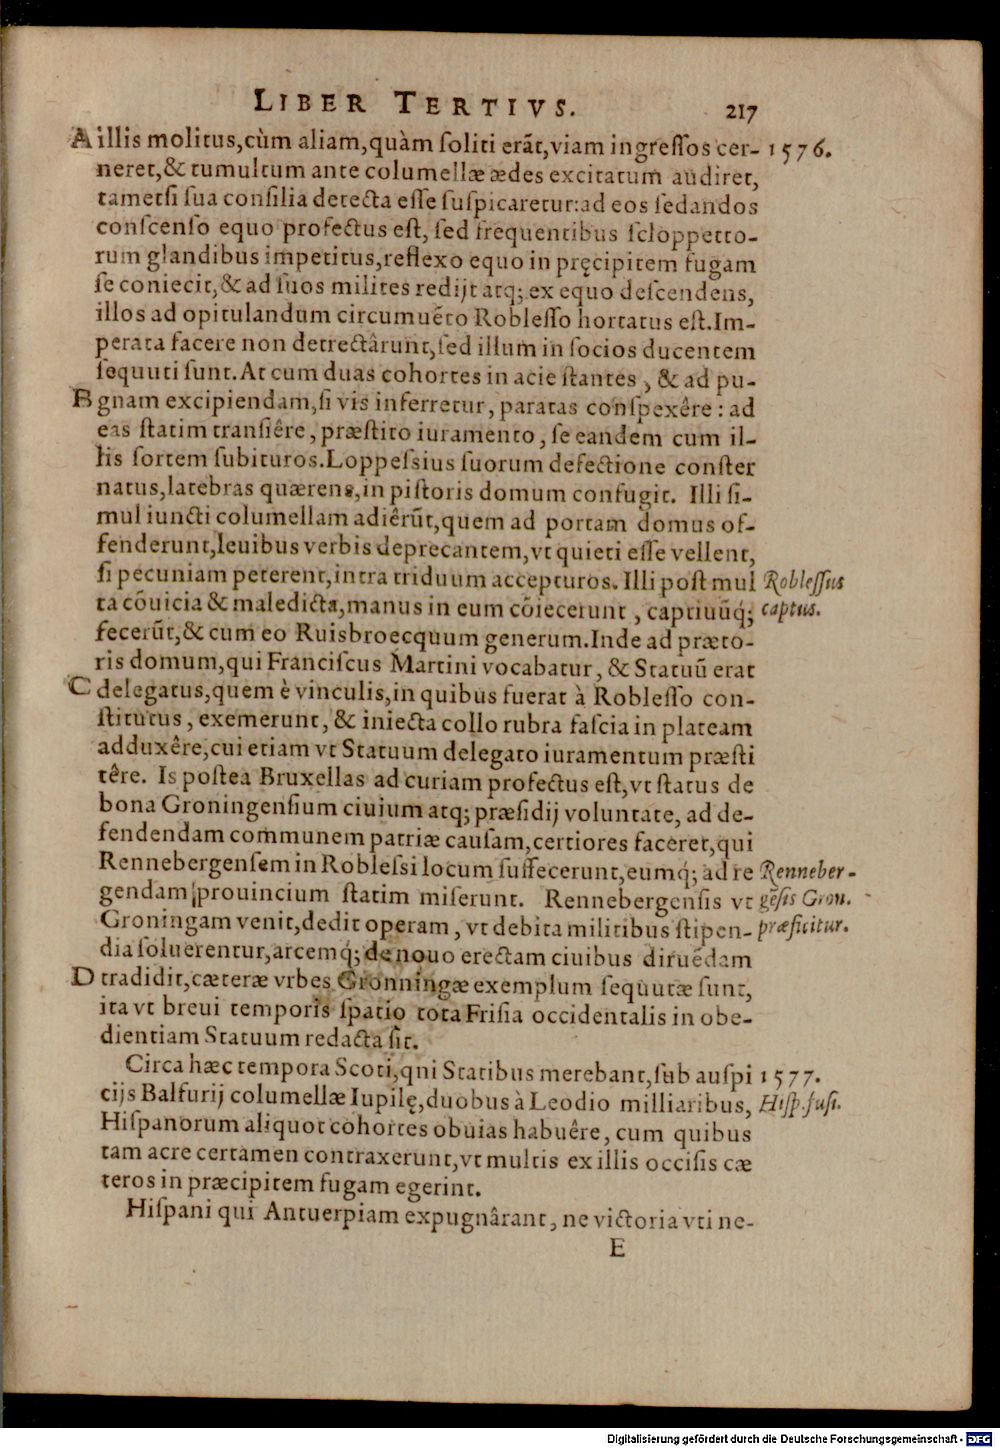 LIBER TERTIVS. 217
A illis molitus,cùm aliam,quàm ſoliti erãt,viam ingreſſos cer- 1576.
neret,& tumultum ante columellæ ædes excitatum audiret,
tametſi ſua conſilia detecta eſſe ſuſpicaretur:ad eos ſedandos
conſcenſo equo profectus eſt, ſed frequentibus ſcloppetto-
rum glandibus impetitus,reflexo equo in pręcipitem fugam
ſe coniecit,& ad ſuos milites redijt atq; ex equo deſcendens,
illos ad opitulandum circumuẽto Robleſſo hortatus eſt.Im-
perata facere non detrectârunt,ſed illum in ſocios ducentem
ſequuti ſunt.At cum duas cohortes in acie ſtantes , & ad pu-
B gnam excipiendam,ſi vis inferretur, paratas conſpexêre : ad
eas ſtatim tranſiêre , præſtito iuramento , ſe eandem cum il-
lis ſortem ſubituros.Loppeſsius ſuorum defectione conſter
natus,latebras quærens,in piſtoris domum confugit. Illi ſi-
mul iuncti columellam adiêrũt,quem ad portam domus of-
fenderunt,leuibus verbis deprecantem,vt quieti eſſe vellent,
ſi pecuniam peterent,intra triduum accepturos. Illi poſt mul Robleſſus
ta cõuicia & maledicta,manus in eum cõiecerunt , captiuũq́; captus.
fecerũt,& cum eo Ruisbroecquum generum.Inde ad præto-
ris domum,qui Franciſcus Martini vocabatur, & Statuũ erat
C delegatus,quem è vinculis,in quibus fuerat à Robleſſo con-
ſtitutus , exemerunt, & iniecta collo rubra faſcia in plateam
adduxêre,cui etiam vt Statuum delegato iuramentum præſti
têre. Is poſtea Bruxellas ad curiam profectus eſt,vt ſtatus de
bona Groningenſium ciuium atq; præſidij voluntate, ad de-
fendendam communem patriæ cauſam,certiores faceret,qui
Rennebergenſem in Robleſsi locum ſuffecerunt,eumq́; ad re Renneber-
gendam prouincium ſtatim miſerunt. Rennebergenſis vt gẽſis Gron.
Groningam venit,dedit operam , vt debita militibus ſtipen- præficitur.
dia ſoluerentur,arcemq́; de nouo erectam ciuibus diruẽdam
D tradidit,cæteræ vrbes Gronningæ exemplum ſequutæ ſunt,
ita vt breui temporis ſpatio tota Friſia occidentalis in obe-
dientiam Statuum redacta ſit.
Circa hæc tempora Scoti,qni Statibus merebant,ſub auſpi 1577.
cijs Balfurij columellæ Iupilę,duobus à Leodio milliaribus, Hiſp.fuſi.
Hiſpanorum aliquot cohortes obuias habuêre, cum quibus
tam acre certamen contraxerunt,vt multis ex illis occiſis cæ
teros in præcipitem fugam egerint.
Hiſpani qui Antuerpiam expugnârant, ne victoria vti ne-
E
Digitalisierung gefördert durch die Deutsche Forschungsgemeinschaft - DFG